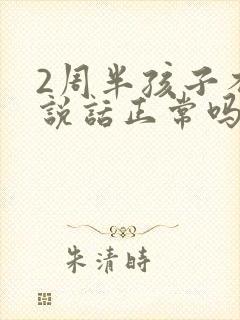 2周半孩子
說話正常吗
朱清時